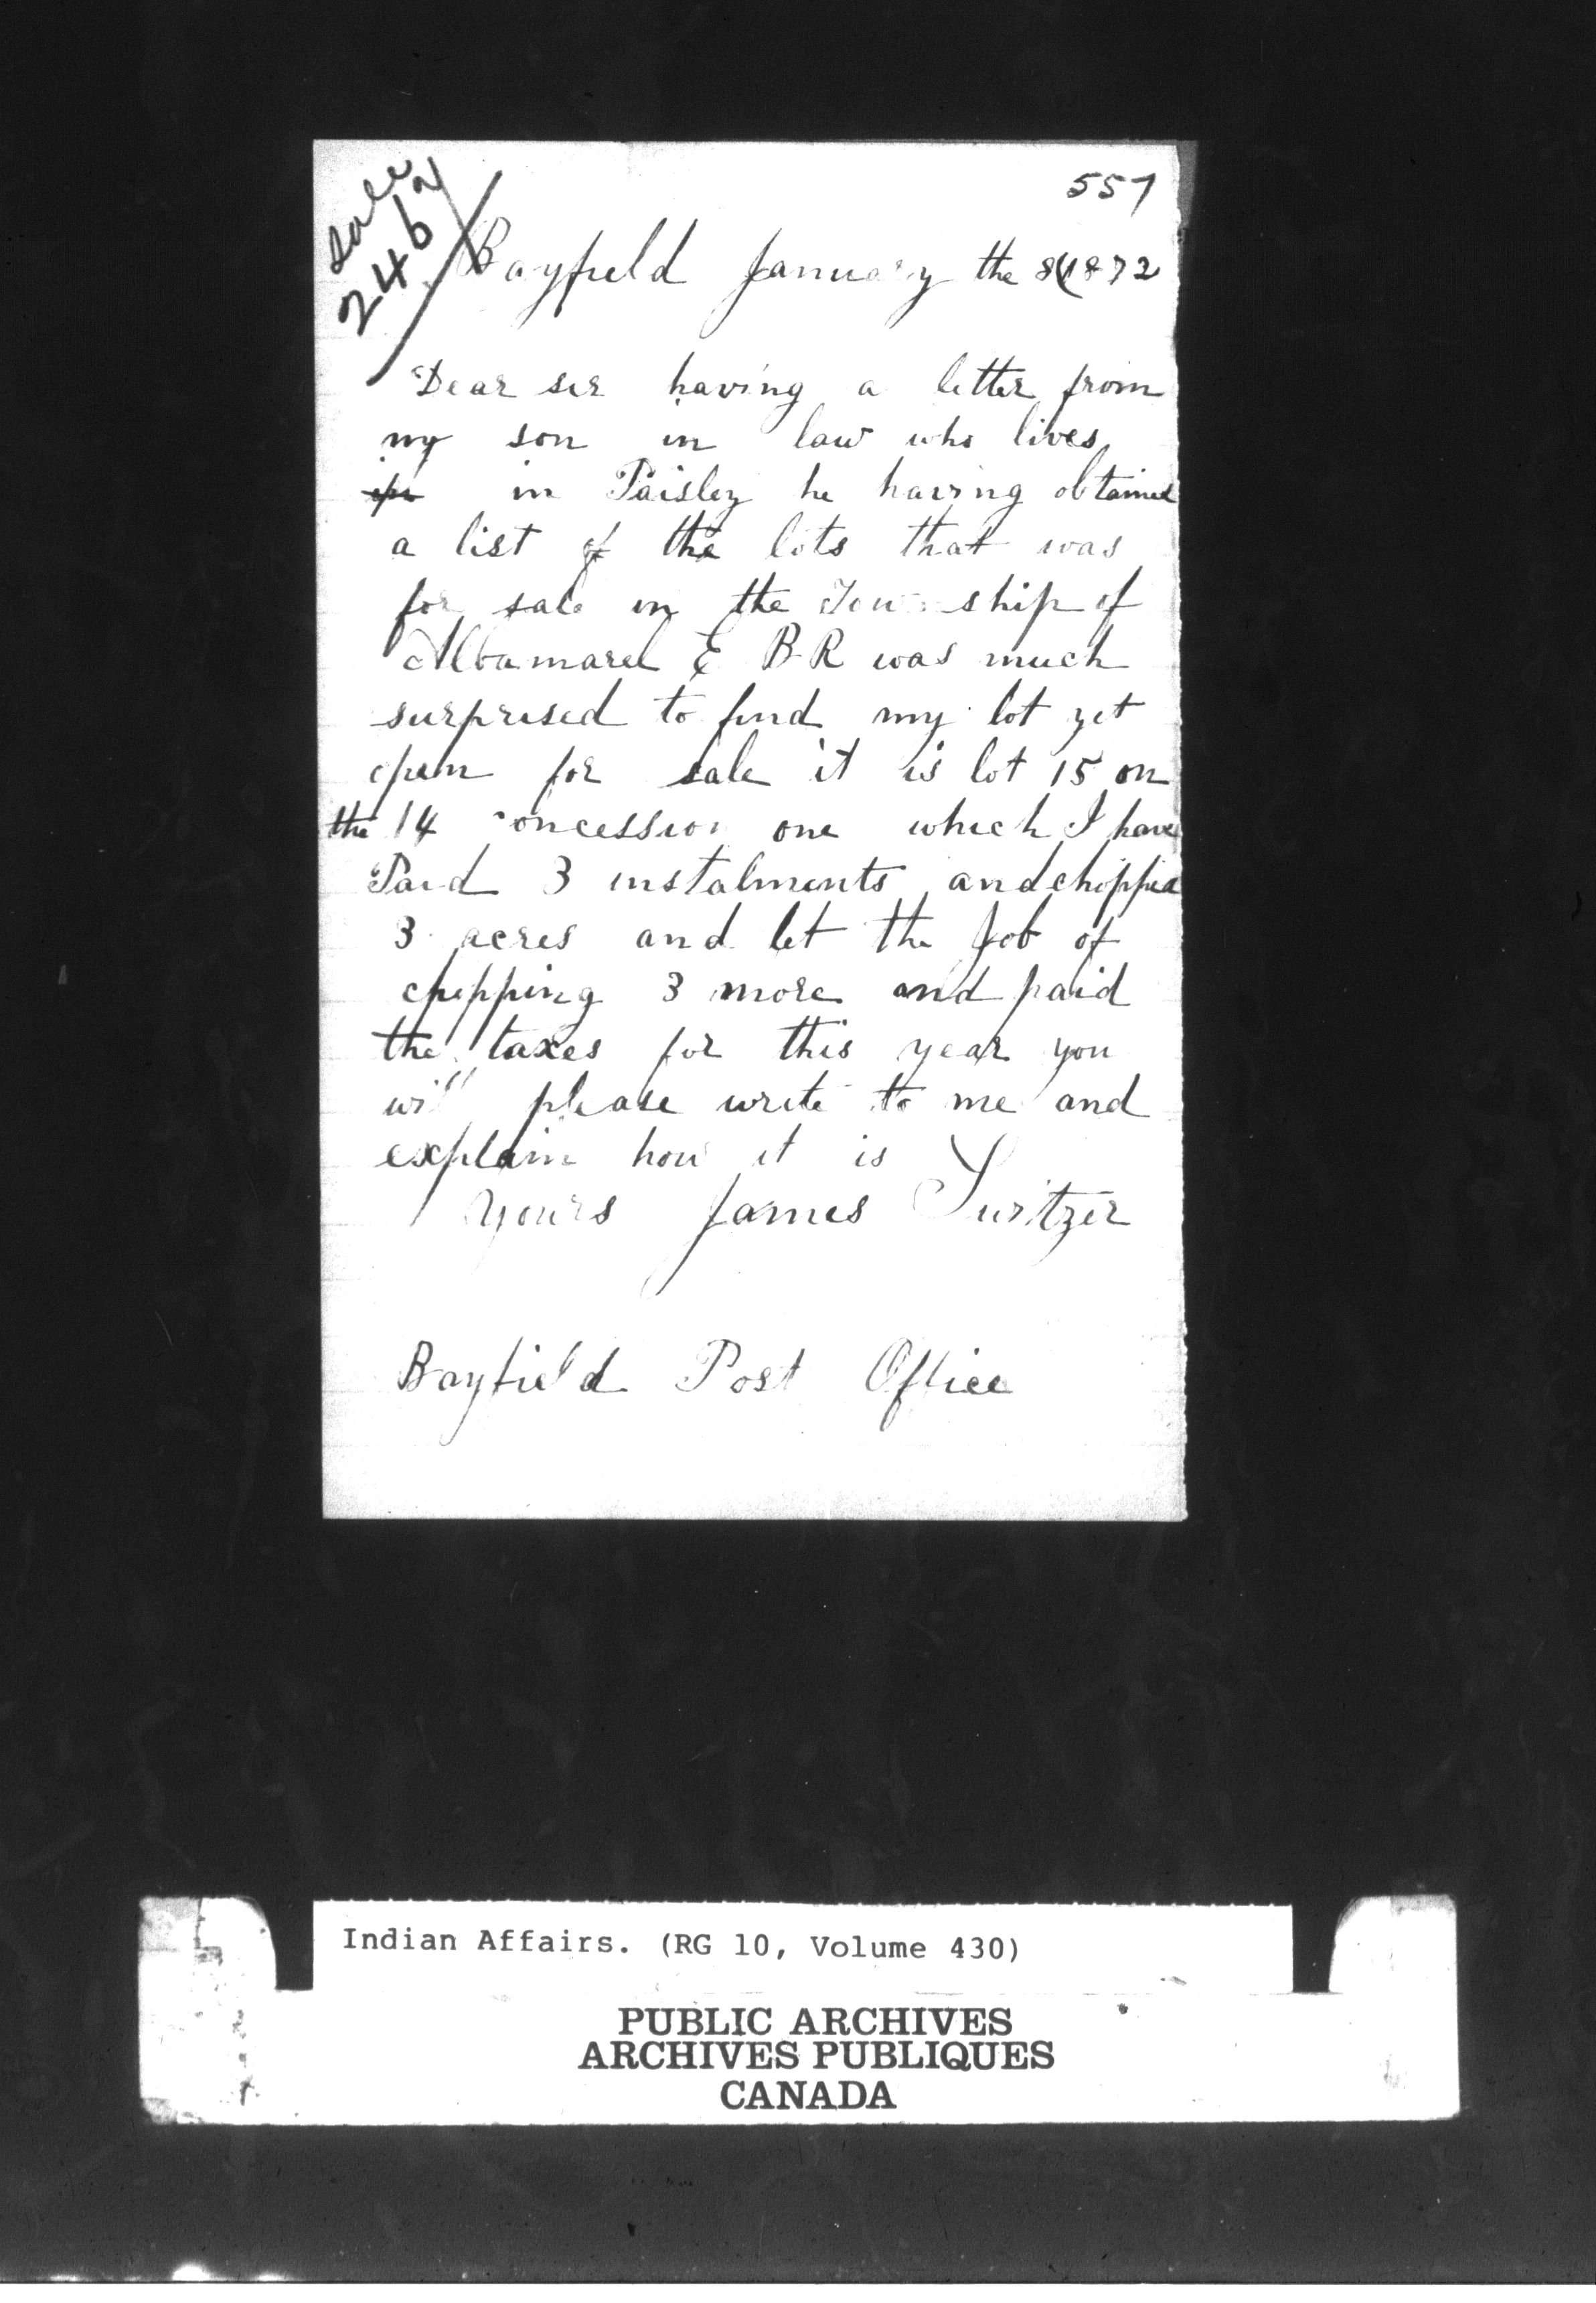 557
Sale
2462
Bayfield January the 8 1872
Dear sir having a letter from
my son in law who lives
in in Paisley he having obtained
a list of the lots that was
for sale in the Township of
Albamarel & B-R was much
surprised to find my lot yet
open for sale it is lot 15 on
the 14 concession one which I have
Paid 3 instalments and chipped
3 acres and let the job of
chipping 3 more and paid
the taxes for this year you
will please write to me and
explain how it is
Yours James Switzer
Bayfield Post Office
Indian Affairs. (RG 10, Volume 430)
PUBLIC ARCHIVES
ARCHIVES PUBLIQUES
CANADA